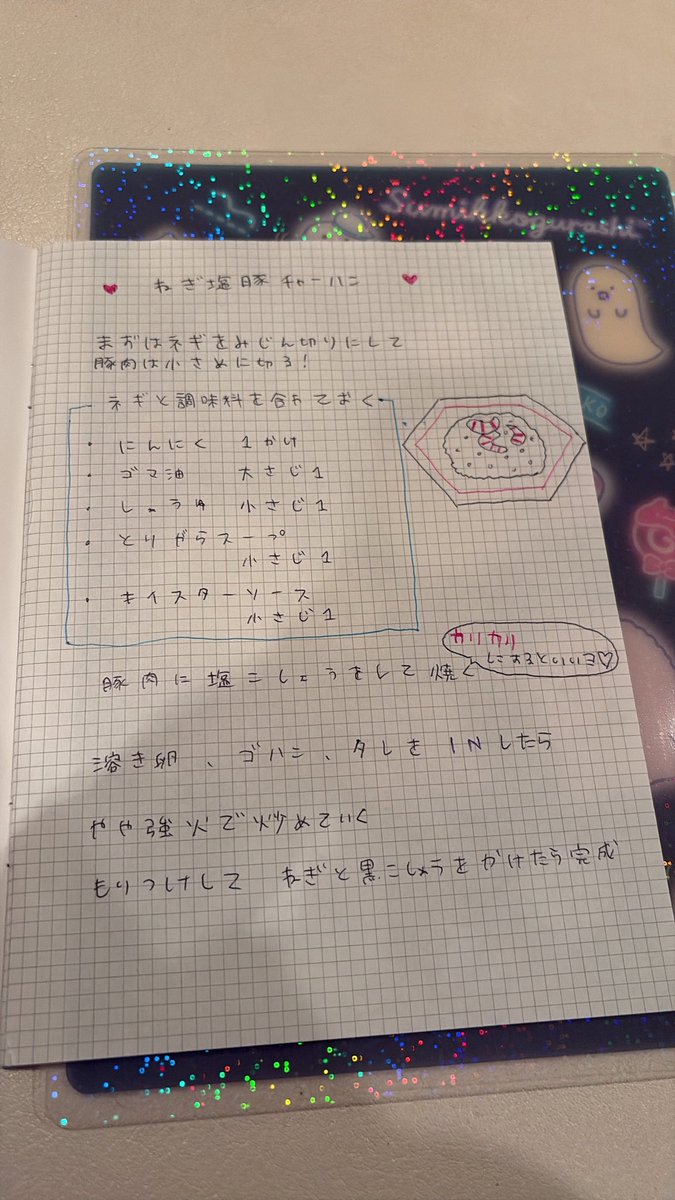 Sumikkogurashi
♥ ねぎ塩豚チャーハン ♥
まずはネギをみじん切りにして
豚肉は小さめに切る!
ネギと調味料を合わせておく
・にんにく 1かけ
・ゴマ油 大さじ1
・しょうゆ 小さじ1
・とりがらスープ
小さじ1
・オイスターソース
小さじ1
カリカリ
にするといいよ♡
豚肉に塩こしょうをして焼く
溶き卵、ゴハン、タレをINしたら
やや強火で炒めていく
もりつけして ねぎと黒こしょうをかけたら完成